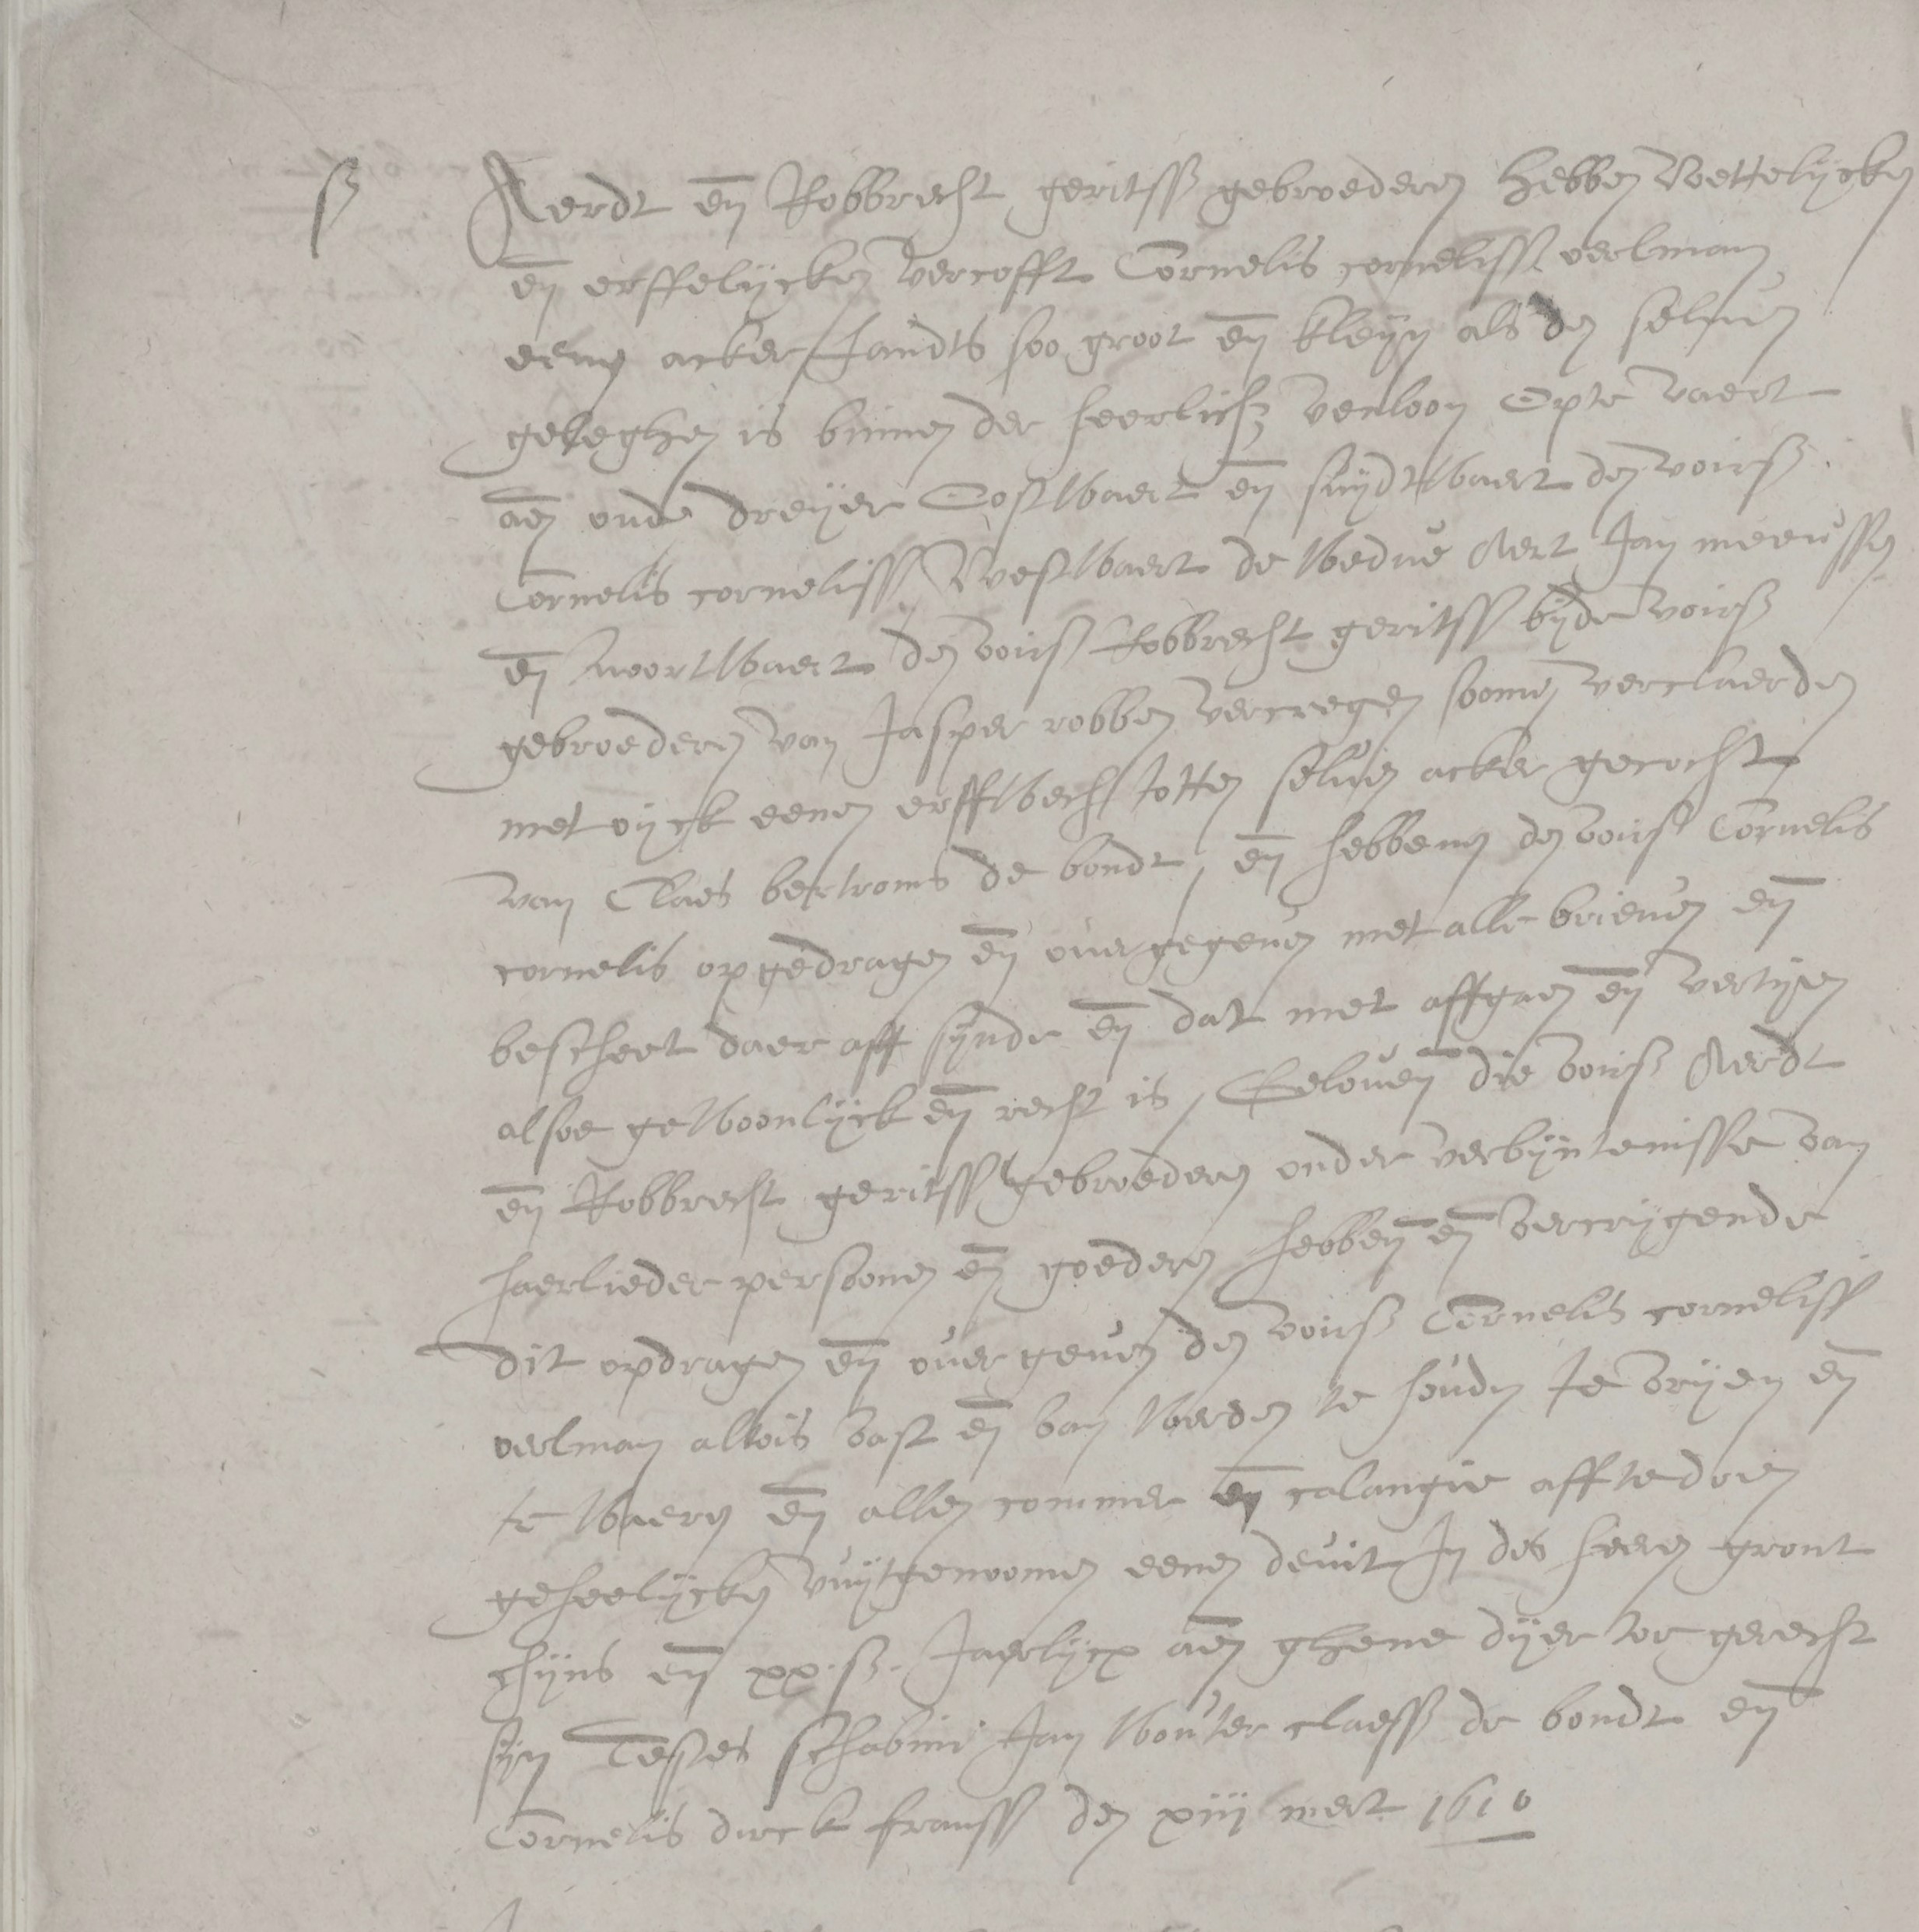 ß Aerdt en̄ Robbrecht geritss gebroederen hebben Wettelijcken
en̄ erffelijcken vercofft Cornelis cornelisss oerlmans
eenen acker landts soo groot en̄ kleyn als den seluen
geleghen is binnen der heerlich₃ venloon Opte vaert
aen oude dreijer Oostwaert en̄ suydtwaert den voirß
Cornelis cornelisss Westwaert de wedue Aert Jan meeussen
en̄ noortwaert den voirß Robbrecht geritss bijde voirß
gebroederen van Jasper robben vercregen soomen verclaerden
met oijck eenen erffwech totten seluen acker gecocht
van Claes bertroms de bondt, en̄ hebbens den voirß Cornelis
cornelis opgedragen en̄ ouergegeuen met alle brieuen en̄
bescheet daer aff sijnde en̄ dat met affgaen en̄ vertijen
alsoe gewoonlijck en̄ recht is, Gelouen die voirß Aerdt
en̄ Robbrecht geritss gebroederen onder verbijntenisse van
haerlieder persoonen en̄ goederen hebben en̄ vercrijgende
dit opdragen en̄ ouergeuen den voirß Cornelis cornelisss
oerlman altois vast en̄ van werden te houden te vrijen en̄
te waeren en̄ allen commer en̄ calangie aff te doen
geheelijcken vuijtgenoomen eenen deuit In des heeren gront
chijns en̄ xx. ß. Jaerlijcx aen ghene dijer toe gerecht
sijn Testes schabini Jan wouter claesss de bondt en̄
Cornelis dirck franss den xiij mert 1610